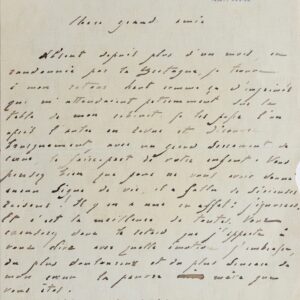 Chère grand amie
Absent depuis plus d'un mois, en
randonnée par la Bretagne, je trouve
à mon retour haut comme ça d'imprimés
qui m'attendaient patiemment sur la
table de mon cabinet. Je les passe l'un
après l'autre en revue et découvre
longuement avec un grand serrement de
cœur, le faire-part de votre enfant! Vous
pensez bien que pour ne vous avoir donné
aucun signe de vie, il a fallu de sérieuses
raisons! Il y en a une en effet: j'ignorais,
Et c'est la meilleure de toutes. Vous
excuserez donc le retard que j'apporte à
vous dire avec quelle émotion j'embrasse,
du plus douloureux et du plus
mon cœur la pauvre mère que
vous êtes.